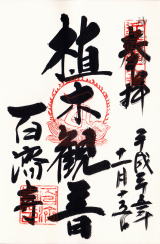 奉拝
平成二十年
十一月十五日
植木観音
百済寺